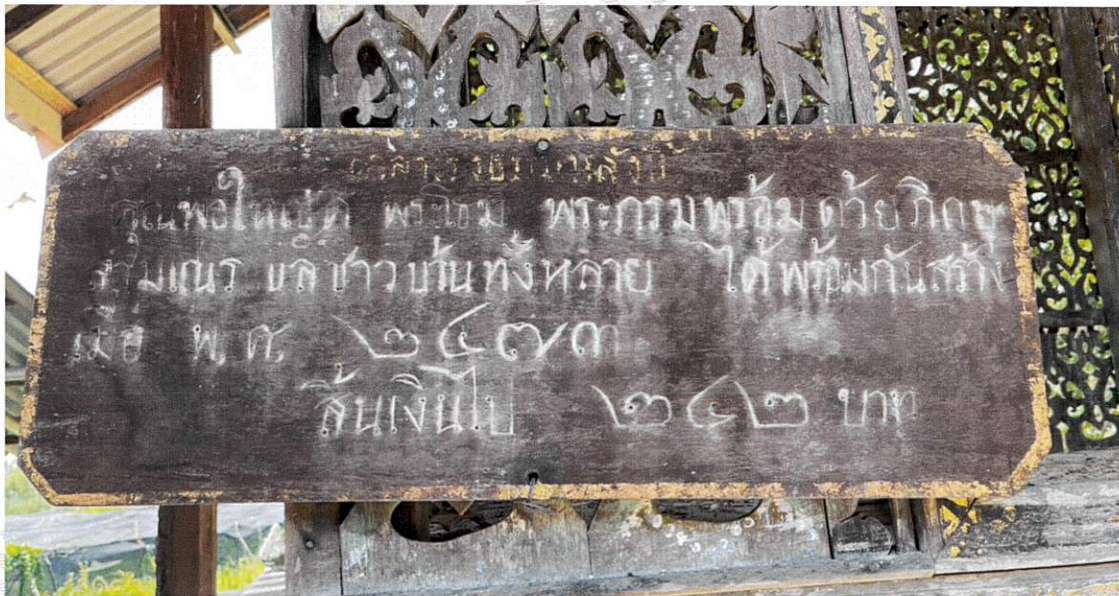 คุณพ่อใหเชิด พระโฮม พระภรมพร้อมด้วยภิกษุ
สามเณร แลชาวบ้านทั้งหลาย ได้พร้อมกันสร้าง
เมื่อ พ,ศ, ๒๔๗๓
สิ้นเงินไป ๒๔๒ บาท